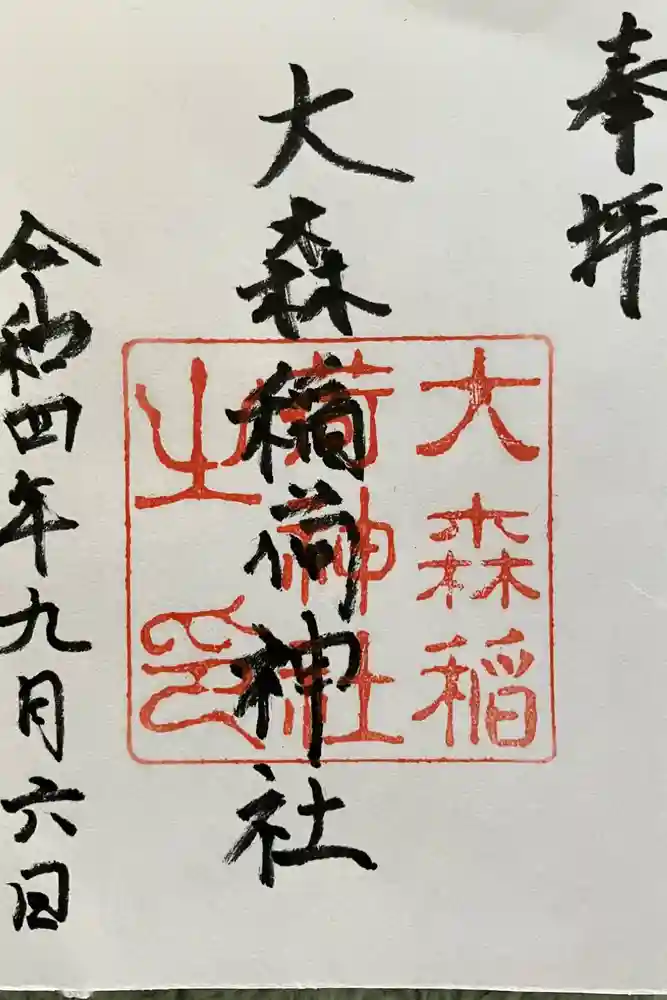 奉拝
大森稲荷神社
令和四年九月六日
大森稲
荷神社
之印